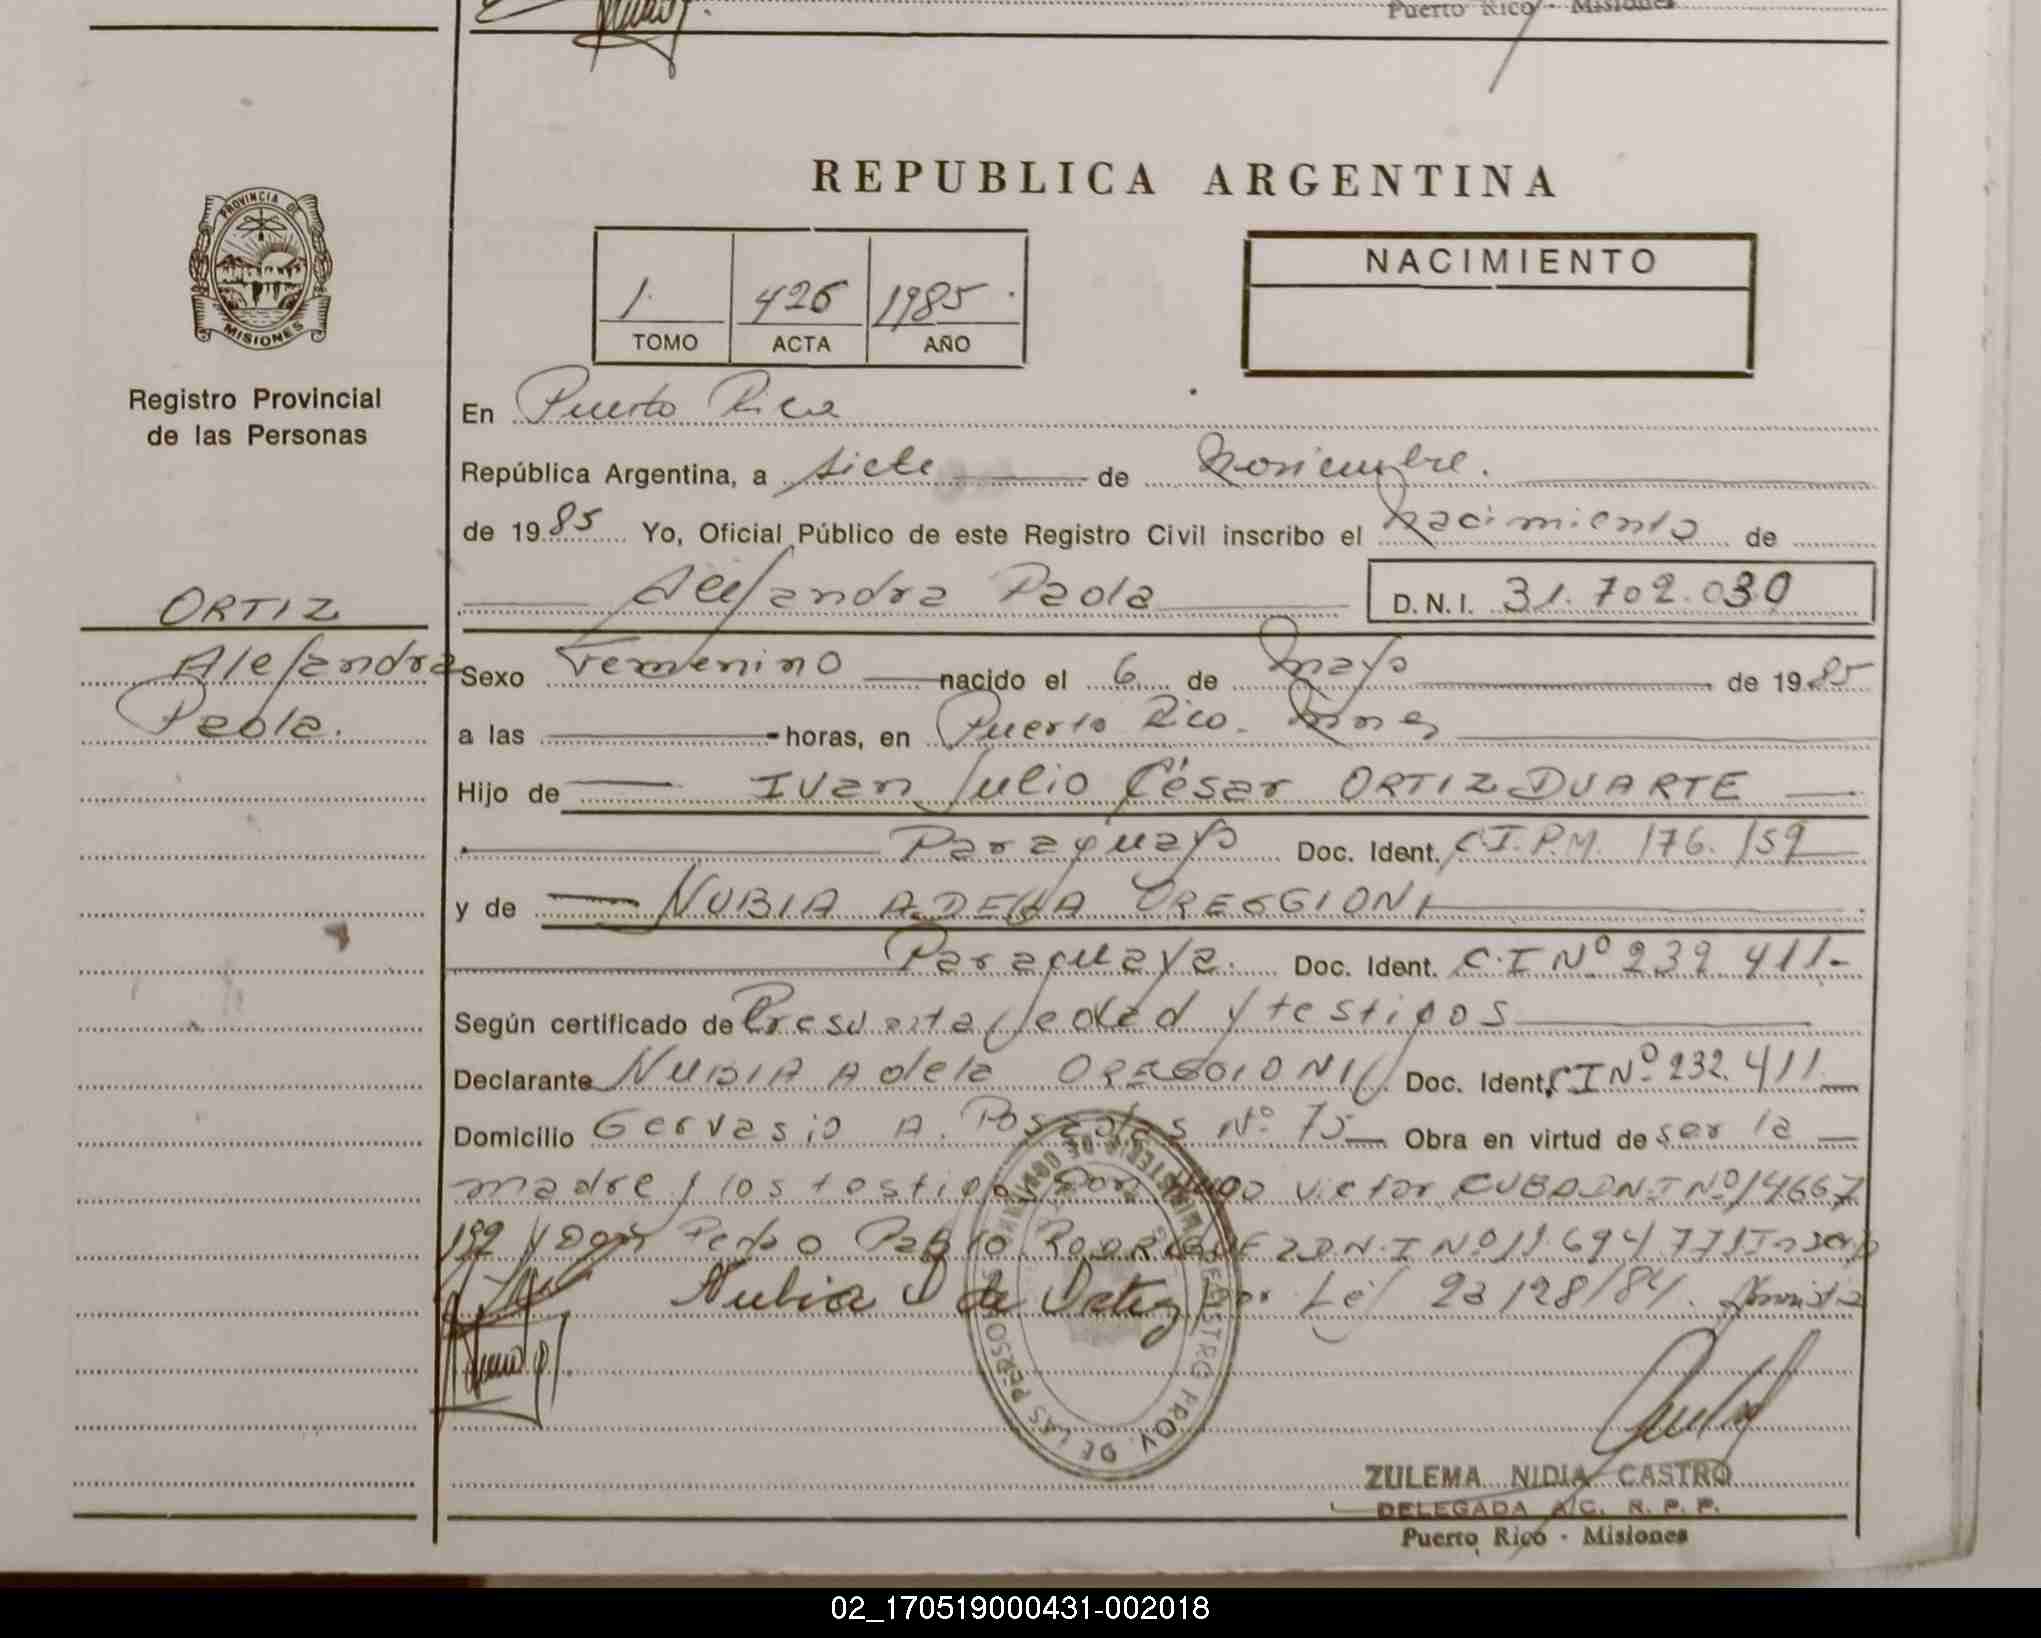 Puerto Rico - Misiones
REPUBLICA ARGENTINA
PROVINCIA DE
MISIONES
Registro Provincial
de las Personas
1. 426 1985.
TOMO ACTA AÑO
NACIMIENTO
En Puerto Rico
República Argentina, a siete de Noviembre.
de 1985 Yo, Oficial Público de este Registro Civil inscribo el Nacimiento de
Alejandra Paola D.N.I. 31.702.030
ORTIZ
Alejandra
Paola.
Sexo Femenino nacido el 6 de mayo de 1985
a las horas, en Puerto Rico. Mnes
Hijo de Ivan Julio César ORTIZ DUARTE
Paraguayo Doc. Ident. C.I.P.M. 176.159
y de NUBIA ADELA OREGGIONI
Paraguaya. Doc. Ident. C.I Nº 232 411-
Según certificado de Presunta edad y testigos
Declarante NUBIA Adela OREGGIONI Doc. Ident. CI Nº 232.411
Domicilio Gervasio A. Posadas Nº 75 Obra en virtud de ser la
madre y los testigos Don Hugo Victor CUBA DN.I Nº 14667
192 y Don Pedro Pablo RODRIGUEZ D.N.I Nº 11.694 771 Inscrip
Nubia O de Ortiz por Ley 23128/84. Amnistia
MINISTERIO DE GOBIERNO
REGISTRO PROV. DE LAS PERSONAS
ZULEMA NIDIA CASTRO
DELEGADA A/C. R. P. P.
Puerto Rico - Misiones
02_170519000431-002018